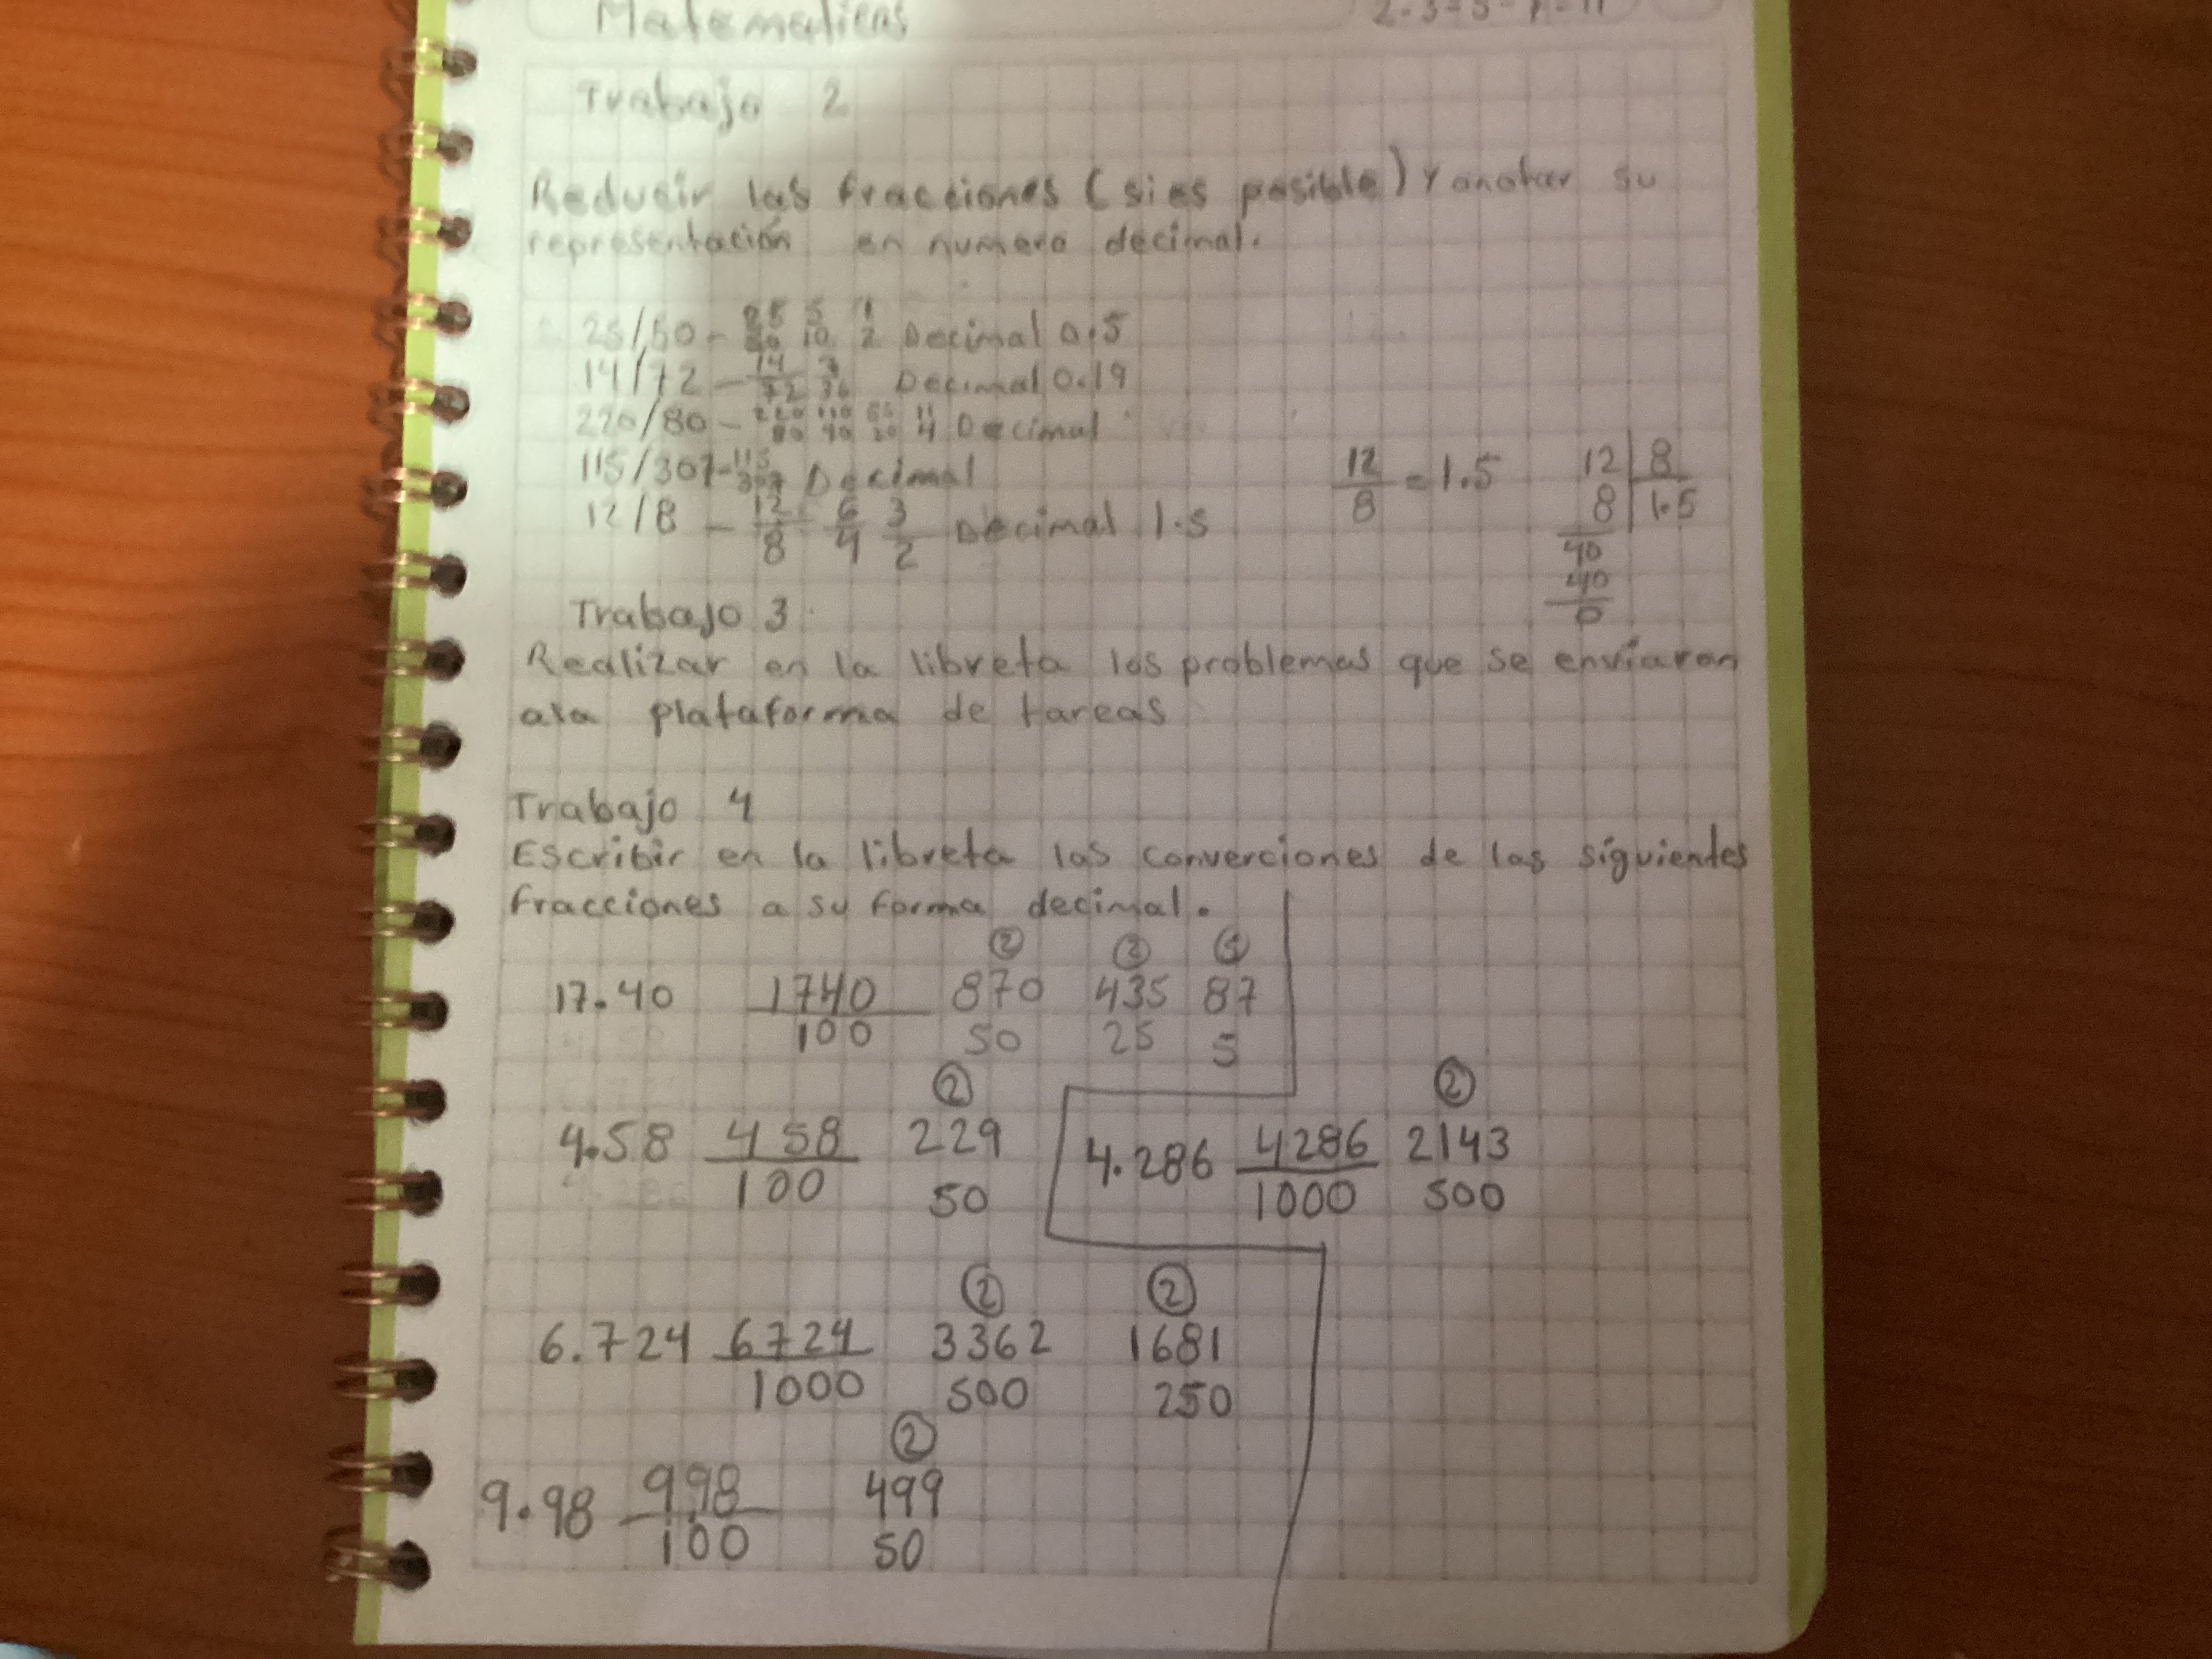 Matematicas
2-3=5-7=11
Trabajo 2
Reducir las fracciones (si es posible) y anotar su
representación en numero decimal.
25/50 - 25/50 5/10 1/2 Decimal 0.5
14/72 - 14/72 7/36 Decimal 0.19
220/80 - 220/80 110/40 55/20 11/4 Decimal
115/307 - 115/307 Decimal
12/8 - 12/8 6/4 3/2 Decimal 1.5
12/8 = 1.5
12 8
8 1.5
40
40
0
Trabajo 3
Realizar en la libreta los problemas que se enviaron
ala plataforma de tareas
Trabajo 4
Escribir en la libreta las converciones de las siguientes
fracciones a su forma decimal.
② ② ⑤
17.40 1740/100 870/50 435/25 87/5
②
4.58 458/100 229/50
②
4.286 4286/1000 2143/500
② ②
6.724 6724/1000 3362/500 1681/250
②
9.98 998/100 499/50